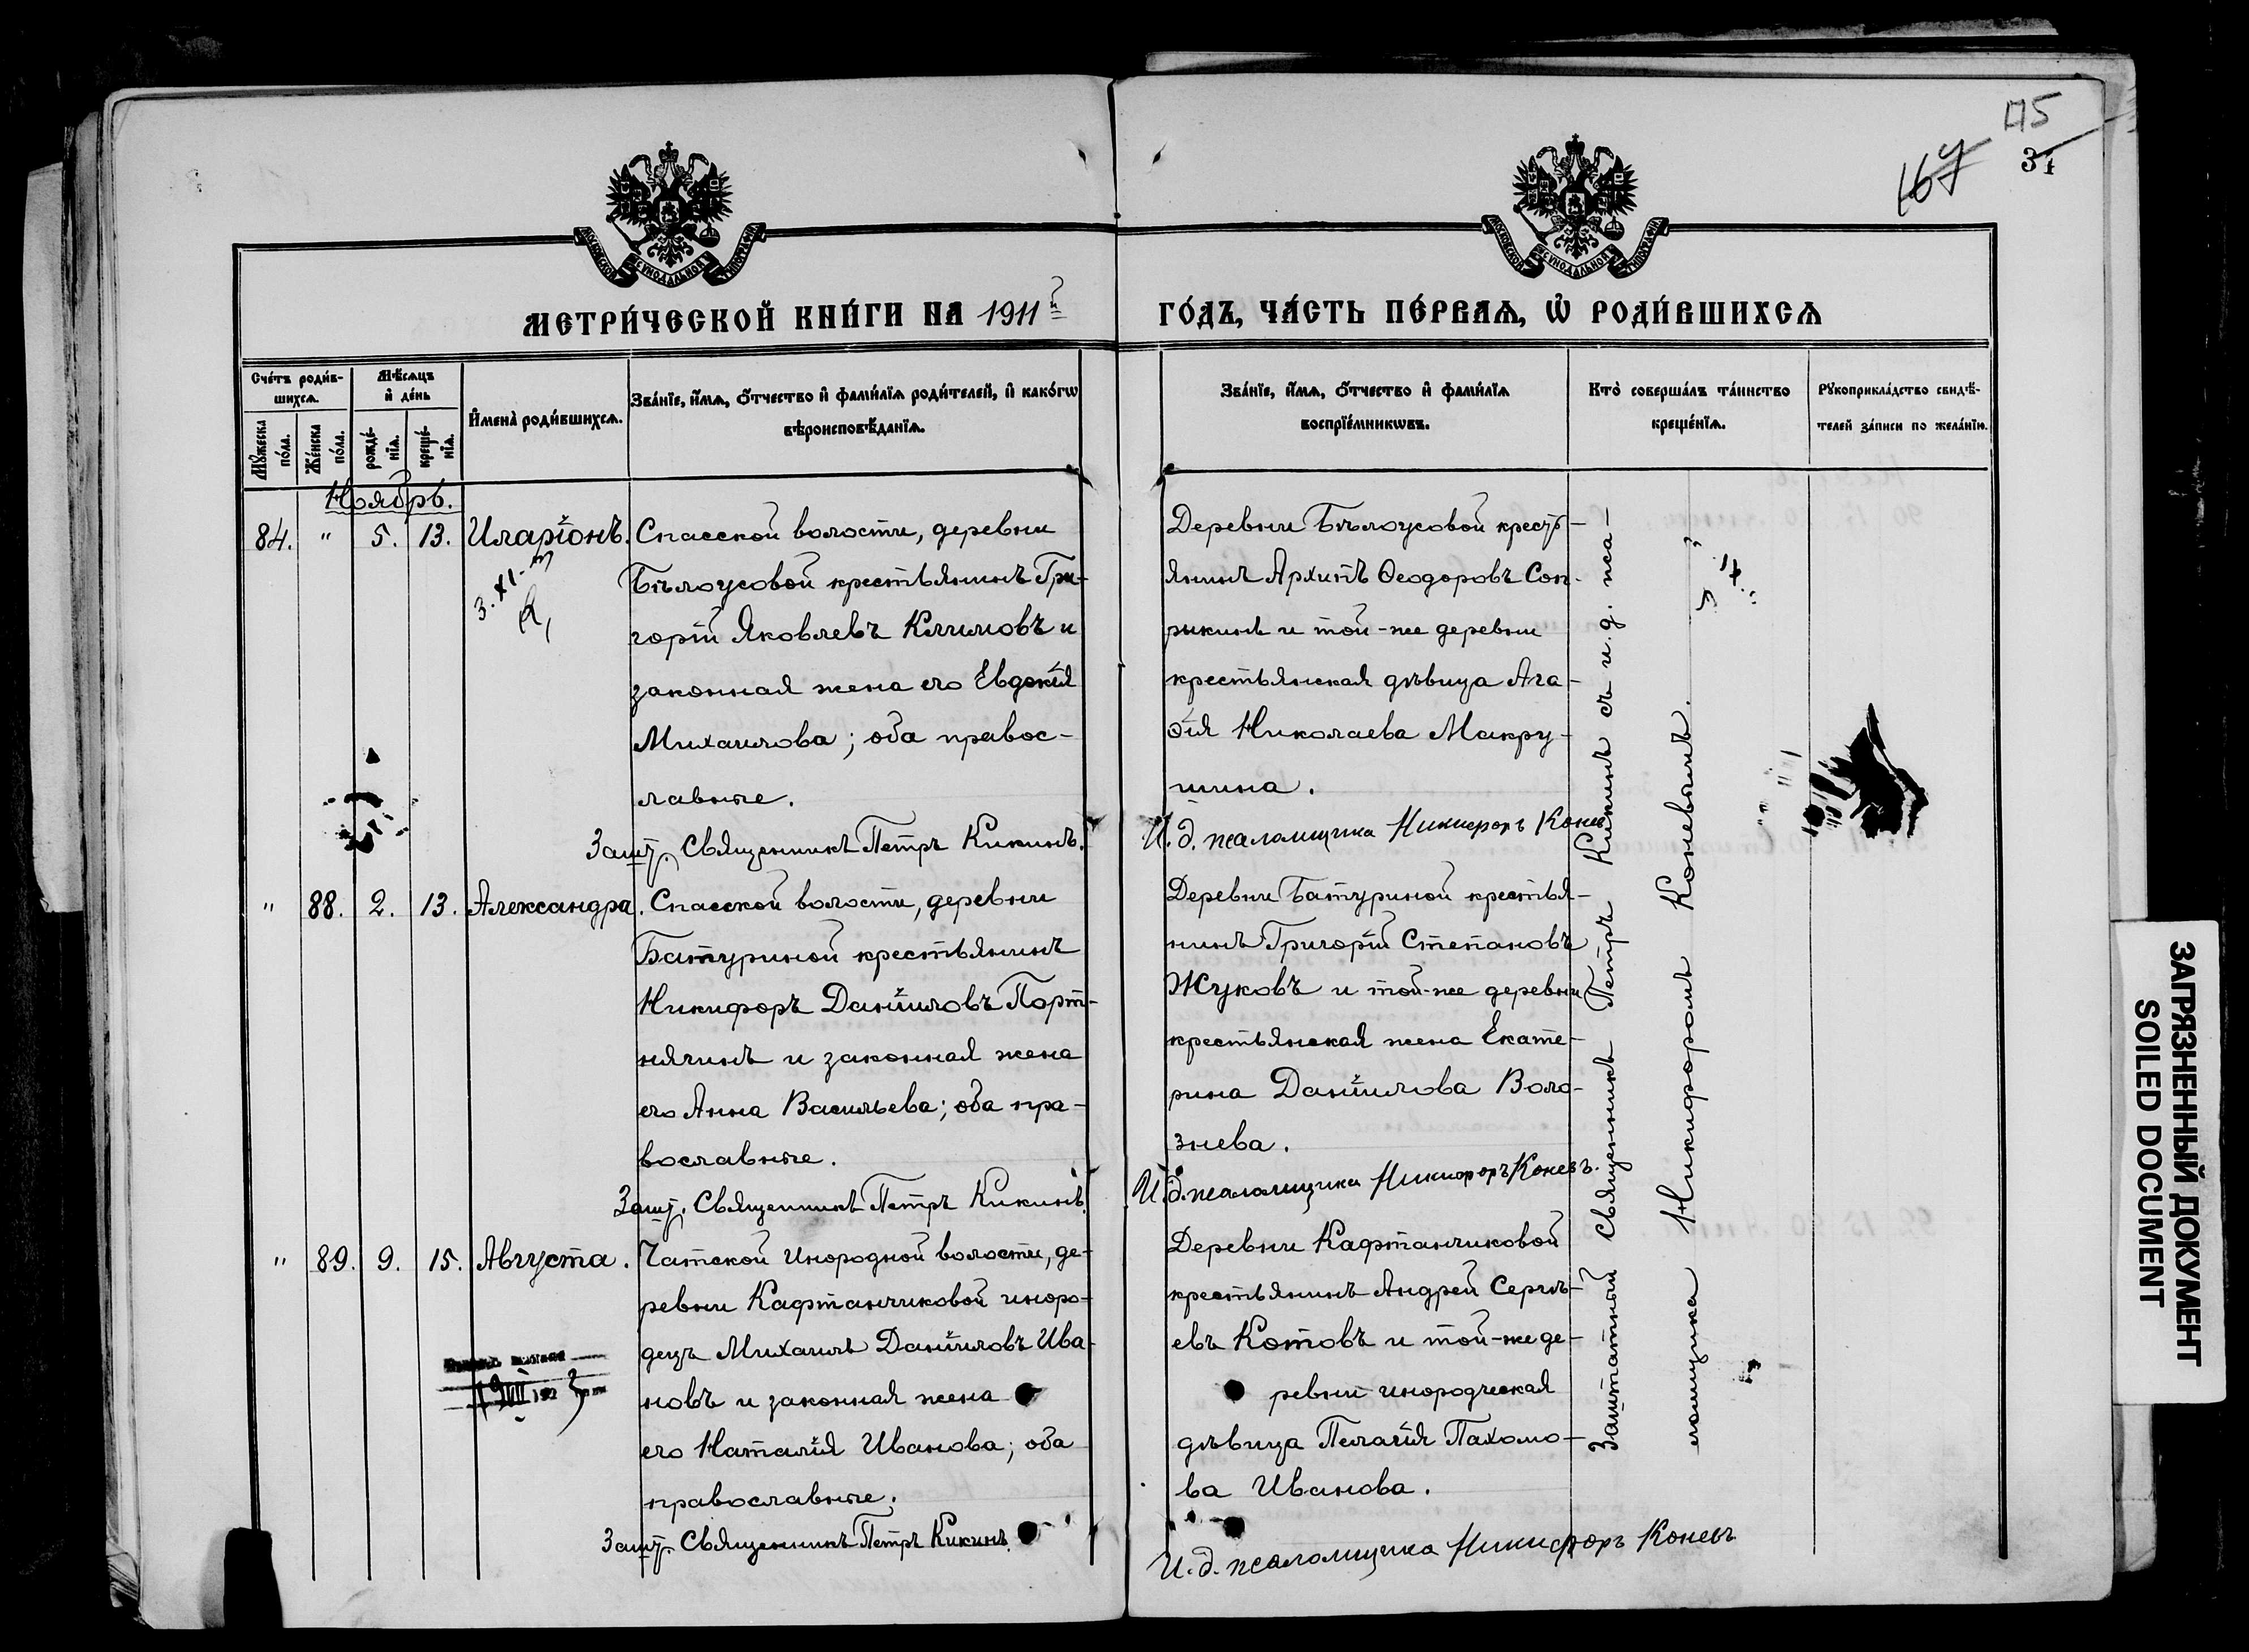 175
167
31
МОСКОВСКОЙ СѴНОДАЛЬНОЙ ТИПОГРАФІИ
МОСКОВСКОЙ СѴНОДАЛЬНОЙ ТИПОГРАФІИ
МЕТРИ́ЧЕСКОЙ КНИ́ГИ НА 1911й
ГО́ДЪ, ЧА́СТЬ ПЕ́РВАѦ, Ѡ҆ РОДИ́ВШИХСѦ
Сче́тъ роди́в-
шихсѧ.
Мꙋ́жеска
по́ла.
Же́нска
по́ла.
Мѣ́сѧцъ
и҆ де́нь
рожде́-
нїѧ.
креще́-
нїѧ.
И҆мена̀ роди́вшихсѧ.
Зва́нїе, и҆́мѧ, ѻ҆́тчество и҆ фами́лїѧ роди́телей, и҆ како́гѡ
вѣроисповѣ́данїѧ.
Зва́нїе, и҆́мѧ, ѻ҆́тчество и҆ фами́лїѧ
воспрїе́мникѡвъ.
Кто̀ соверша́лъ та́инство
креще́нїѧ.
Рꙋкоприкла́дство свидѣ́-
телей за́писи по жела́нїю.
Ноябрь.
84. " 5. 13. Иларіонъ.
3. XI-
Спасской волости, деревни
Бѣлоусовой крестьянинъ Гри-
горій Яковлевъ Климовъ и
законная жена его Евдокія
Михаилова; оба правос-
лавные.
Зашт. Священникъ Петръ Кикинъ.
Деревни Бѣлоусовой кресть-
янинъ Архипъ Ѳеодоровъ Соп-
рыкинъ и той-же деревни
крестьянская дѣвица Ага-
ѳія Николаева Макру-
шина.
И. д. псаломщика Никифоръ Конев
" 88. 2. 13. Александра.
Спасской волости, деревни
Батуриной крестьянинъ
Никифоръ Даніиловъ Порт-
нягинъ и законная жена
его Анна Васильева; оба пра-
вославные.
Зашт. Священникъ Петръ Кикинъ.
Деревни Батуриной крестья-
нинъ Григорій Степановъ
Жуковъ и той-же деревни
крестьянская жена Екате-
рина Даніилова Воло-
знева.
И. д. псаломщика Никифоръ Коневъ.
" 89. 9. 15. Августа.
Чатской Инородной волости, де-
ревни Кафтанчиковой иноро-
децъ Михаилъ Даніиловъ Ива-
новъ и законная жена
его Наталія Иванова; оба
православные.
Зашт. Священникъ Петръ Кикинъ.
Деревни Кафтанчиковой
крестьянинъ Андрей Сергѣ-
евъ Котовъ и той-же де-
ревни инородческая
дѣвица Пелагія Пахомо-
ва Иванова.
И. д. псаломщика Никифоръ Коневъ
Заштатный Священникъ Петръ Кикинъ съ и. д. пса-
ломщика Никифоромъ Коневымъ.
ЗАГРЯЗНЕННЫЙ ДОКУМЕНТ
SOILED DOCUMENT